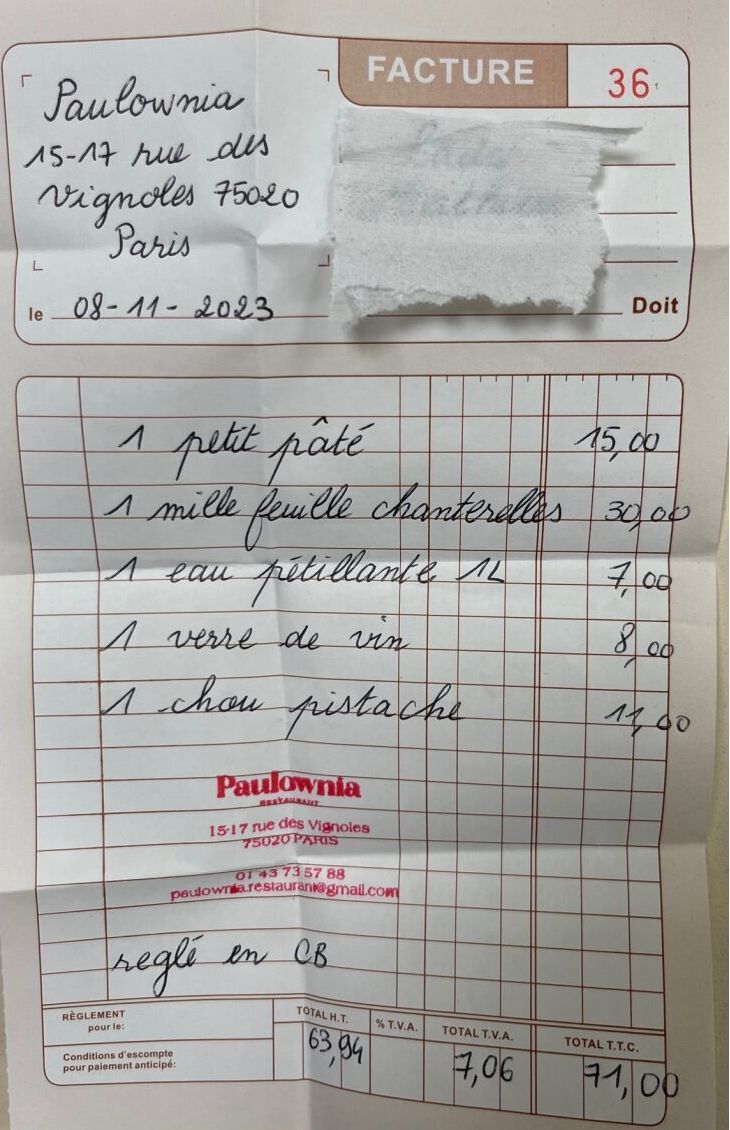 FACTURE
36
Paulownia
15-17 rue des
Vignoles 75020
Paris
le 08-11-2023
Doit
1 petit pâté 15,00
1 mille feuille chanterelles 30,00
1 eau pétillante 1L 7,00
1 verre de vin 8,00
1 chou pistache 11,00
Paulownia
RESTAURANT
15-17 rue des Vignoles
75020 PARIS
01 43 73 57 88
paulownia.restaurant@gmail.com
reglé en CB
RÈGLEMENT
pour le:
Conditions d'escompte
pour paiement anticipé:
TOTAL H.T. % T.V.A. TOTAL T.V.A. TOTAL T.T.C.
63,94 7,06 71,00